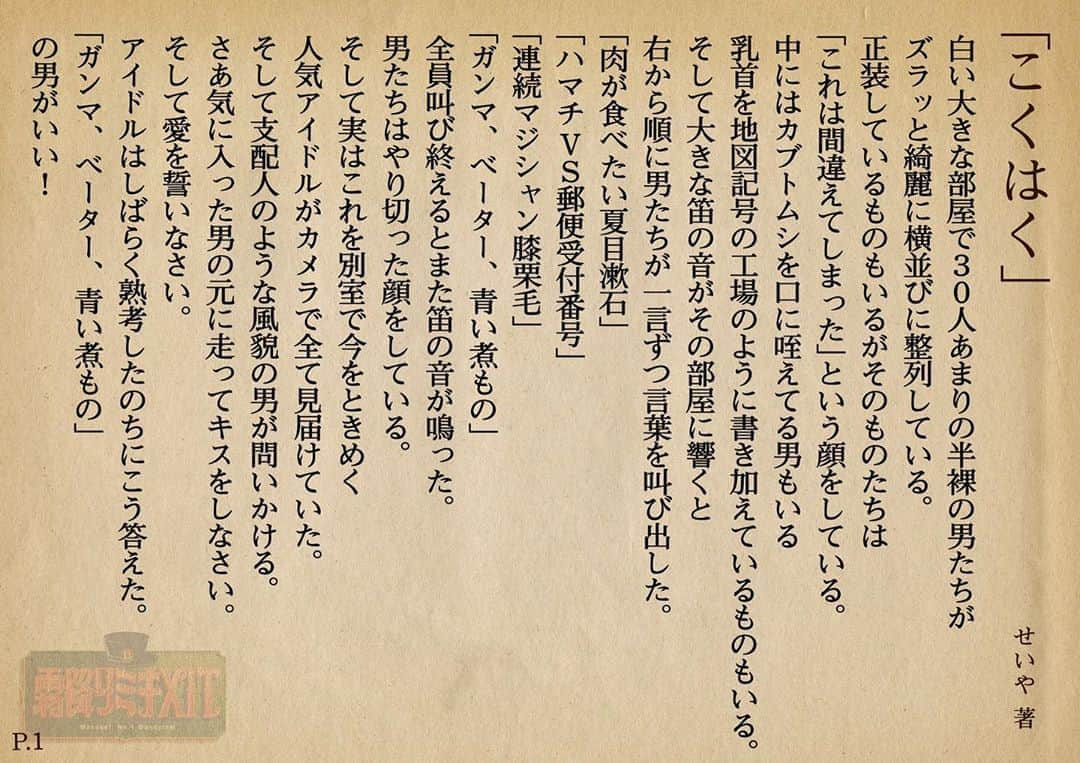 「こくはく」
せいや 著
白い大きな部屋で30人あまりの半裸の男たちが
ズラッと綺麗に横並びに整列している。
正装しているものもいるがそのものたちは
「これは間違えてしまった」という顔をしている。
中にはカブトムシを口に咥えてる男もいる
乳首を地図記号の工場のように書き加えているものもいる。
そして大きな笛の音がその部屋に響くと
右から順に男たちが一言ずつ言葉を叫び出した。
「肉が食べたい夏目漱石」
「ハマチVS郵便受付番号」
「連続マジシャン膝栗毛」
「ガンマ、ベーター、青い煮もの」
全員叫び終えるとまた笛の音が鳴った。
男たちはやり切った顔をしている。
そして実はこれを別室で今をときめく
人気アイドルがカメラで全て見届けていた。
そして支配人のような風貌の男が問いかける。
さあ気に入った男の元に走ってキスをしなさい。
そして愛を誓いなさい。
アイドルはしばらく熟考したのちにこう答えた。
「ガンマ、ベーター、青い煮もの」
の男がいい！
霜降りミチメイイ
P.1